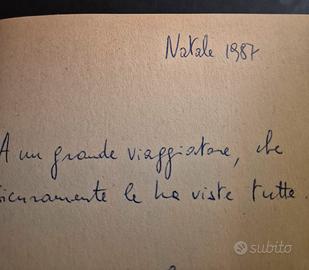 Natale 1987
A un grande viaggiatore, che
sicuramente le ha viste tutte.
subito